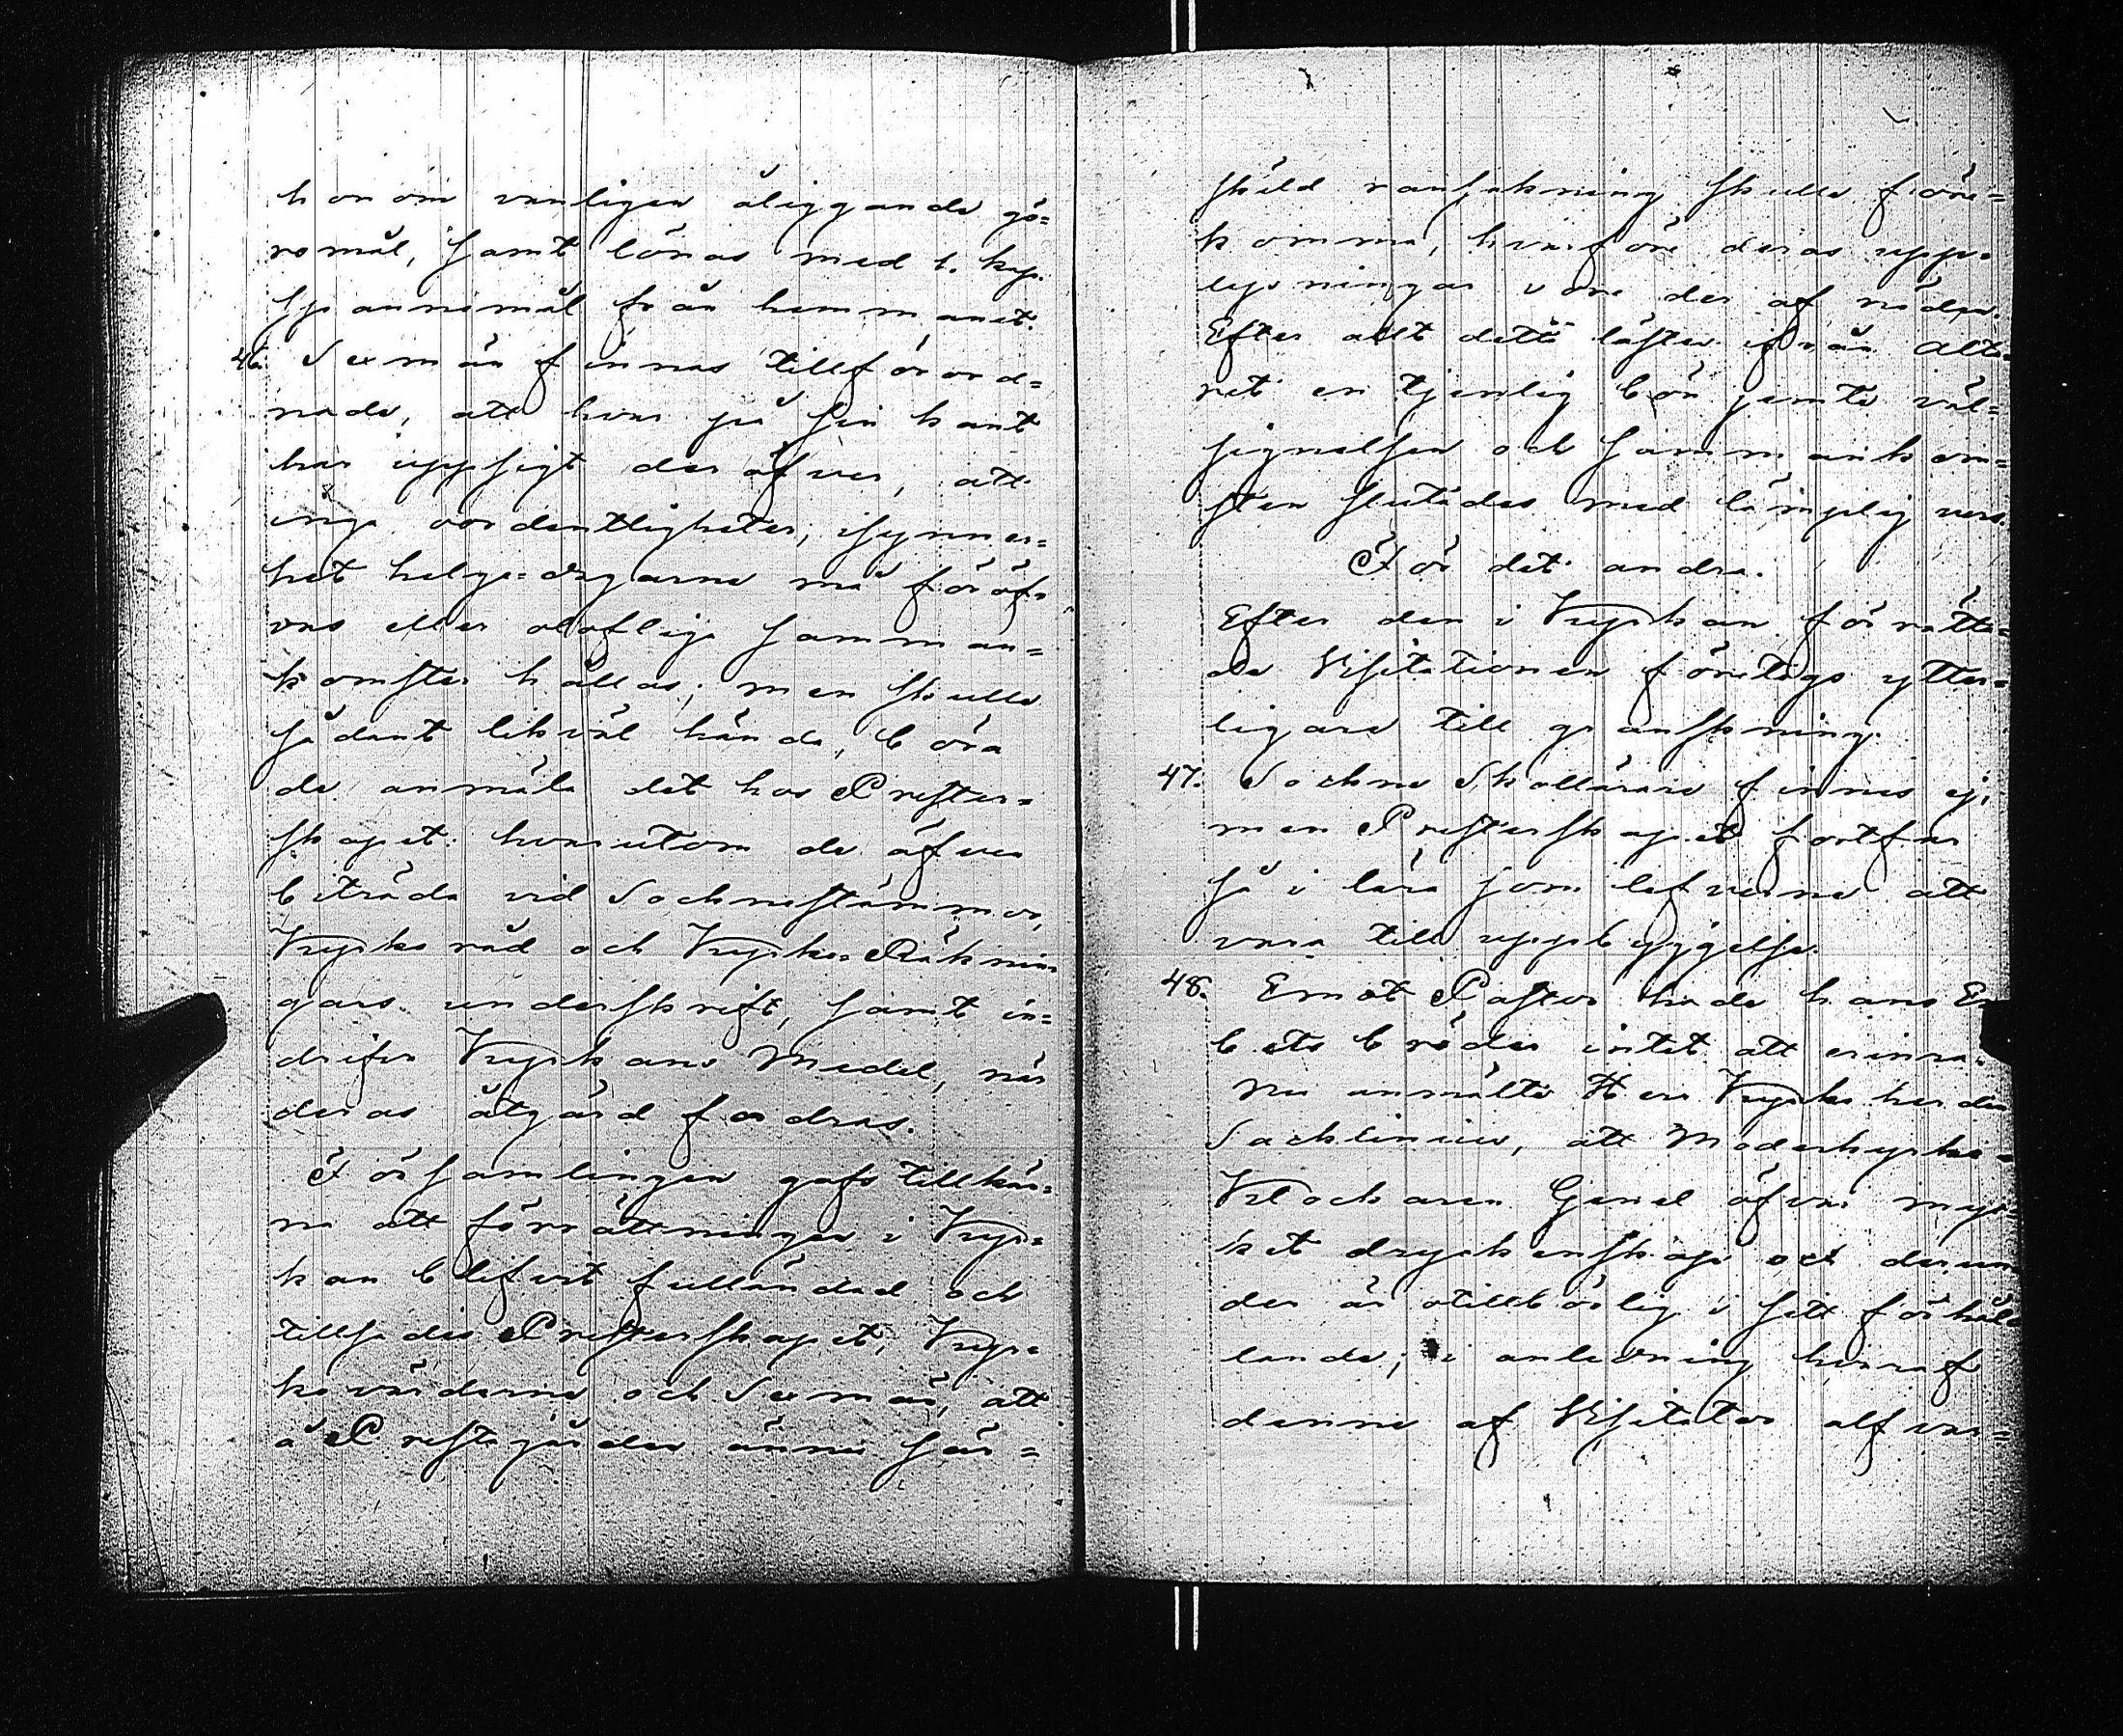 honom vanligen åliggande gö=
romål, samt lönas med 1. kp.
spannemål från hemmanet.
46. Sexmän finnas tillförord=
nade, att hvar på sin kant
har uppsigt deröfver, att
inga oordentligheter, isynner=
het helge=dagarne må föröf=
vas eller olofliga samman=
komster hållas; men skulle
sådant likväl hända, böra
de anmäla det hos Prester=
skapet: hvarutom de äfven
biträda vid Sochnestämmor,
Kyrko råd och Kyrko=Räknin
gars underskrift, samt in=
drifva Kyrkans Medel, när
deras åtgärd fordras.
Församlingen gafs tillkän=
na att förrättningen i Kyr=
kan blifvit fulländad och
tillsades Presterskapet, Kyr=
kovärdarne och Sexmän, att
å Prestgården ännu sär=
skild ransakning skulle före=
komma, hvarföre deras upp=
lysningar vore der af nöden.
Efter allt detta lästes ifrån Alta=
ret en tjenlig bön jemte väl=
signelsen och sammankom=
sten slutades med lämplig vers.
För det andra.
Efter den i Kyrkan förrätta=
de Visitationen företogs ytter=
ligare till granskning.
47. Sochne Skollärare finnes ej,
men Presterskapet fortfar
så i lära som lefverne att
vara till uppbyggelse.
48. Emot Pastor hade hans Em
bets bröder intet att erinra.
Nu anmälte Herr Kyrkoherden
Sacklinius, att Moderkyrko=
Klockaren Genel öfvar myc
ket dryckenskap och derun
der är otillbörlig i sitt förhål
lande; i anledning hvaraf
denne af Visitator alfvar=